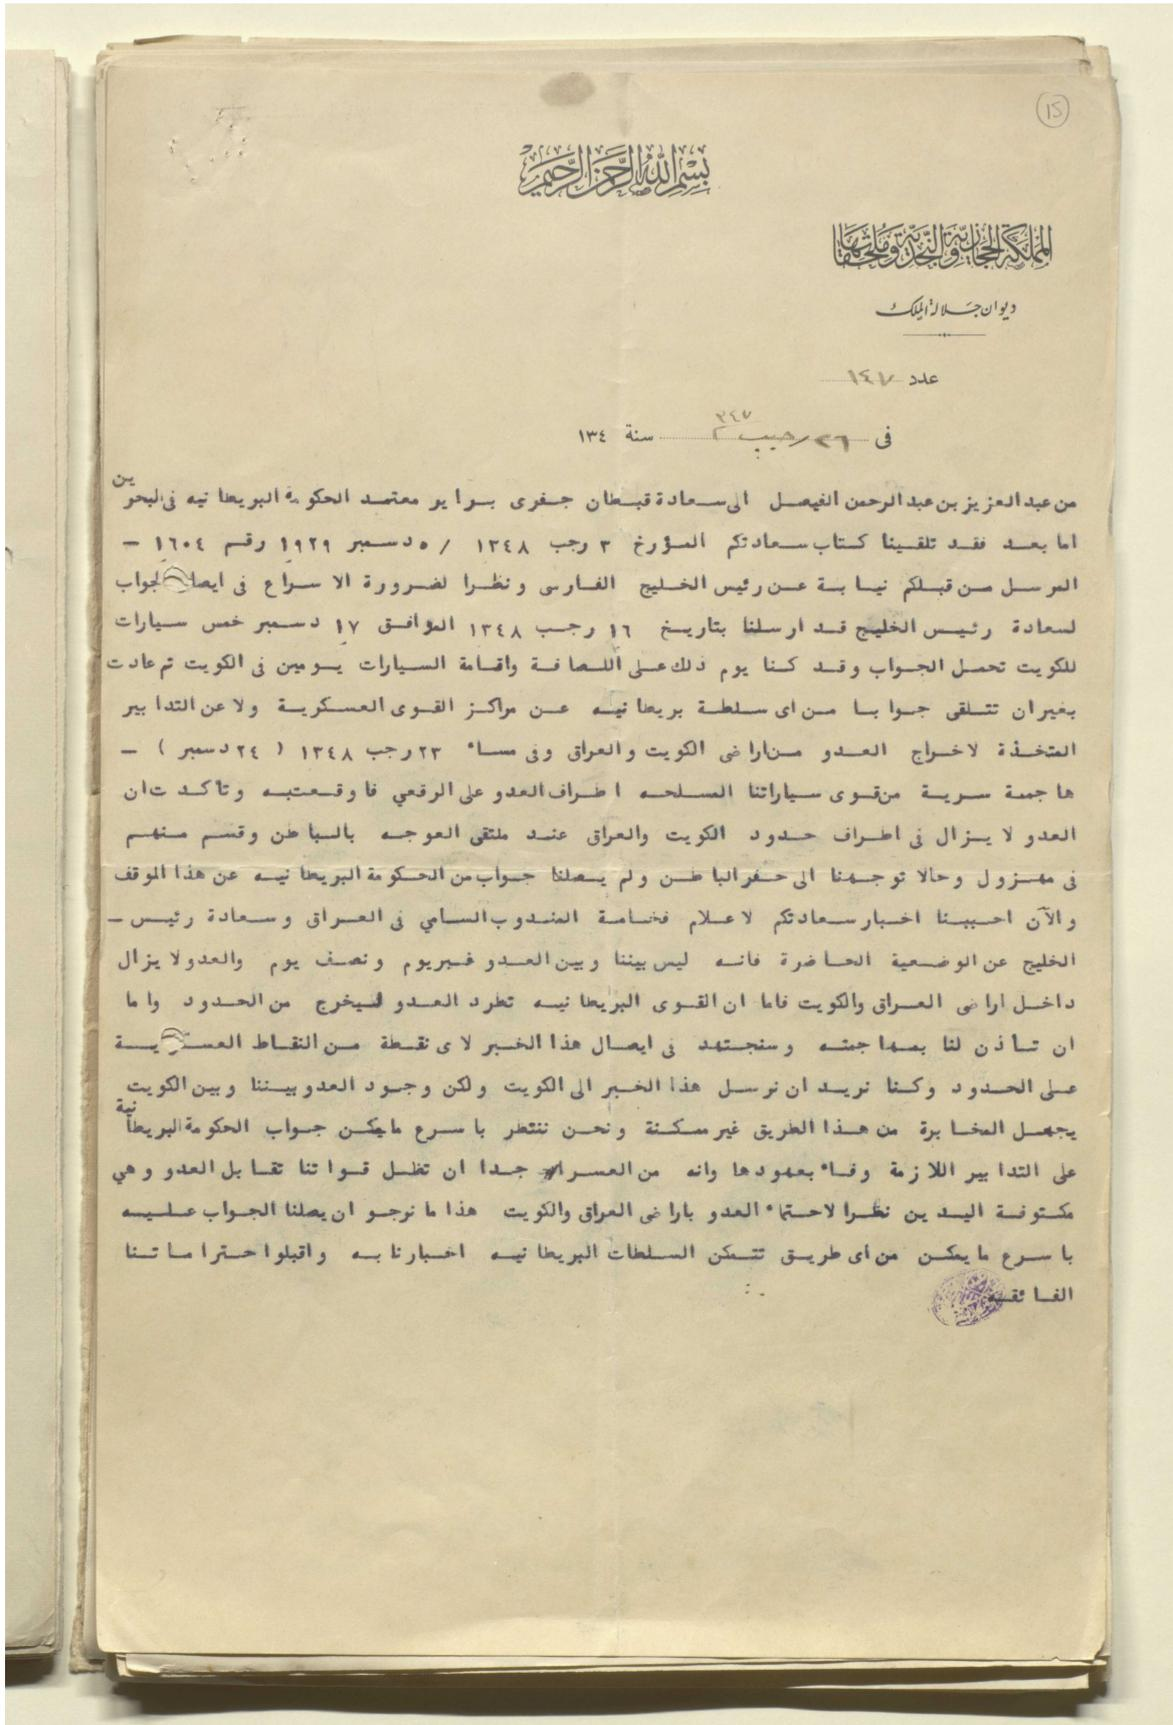 ١٥
بسم الله الرحمن الرحيم
المملكة الحجازية والنجدية وملحقاتها
ديوان جلالة الملك
عدد ١٤٧
فى ٢٦ رجب سنة ١٣٤
من عبد العزيز بن عبد الرحمن الفيصل الى سعادة قبطان جفرى براير معتمد الحكومة البريطانيه فى البحرين
اما بعد فقد تلقينا كتاب سعادتكم المؤرخ ٣ رجب ١٣٤٨ / ٥ دسمبر ١٩٢٩ رقم ١٦٠٤ –
المرسل من قبلكم نيابة عن رئيس الخليج الفارسى ونظرا لضرورة الاسراع فى ايصال الجواب
لسعادة رئيس الخليج قد ارسلنا بتاريخ ١٦ رجب ١٣٤٨ الموافق ١٧ دسمبر خمس سيارات
للكويت تحمل الجواب وقد كنا يوم ذلك على اللصافة واقامة السيارات يومين فى الكويت ثم عادت
بغيران تتلقى جوابا من اى سلطة بريطانيه عن مراكز القوى العسكرية ولا عن التدابير
المتخذة لاخراج العدو من اراضى الكويت والعراق وفى مساء ٢٣ رجب ١٣٤٨ ( ٢٤ دسمبر ) –
هاجمة سرية من قوى سياراتنا المسلحه اطراف العدو على الرقعي فاوقعتبه وتأكدت ان
العدو لا يزال فى اطراف حدود الكويت والعراق عند ملتقى العوجه بالباطن وقسم منهم
فى مهزول وحالا توجهنا الى حفر الباطن ولم يصلنا جواب من الحكومة البريطانيه عن هذا الموقف
والآن احببنا اخبار سعادتكم لاعلام فخامة المندوب السامي فى العراق وسعادة رئيس –
الخليج عن الوضعية الحاضرة فانه ليس بيننا وبين العدو غير يوم ونصف يوم والعدو لا يزال
داخل اراضى العراق والكويت فاما ان القوى البريطانيه تطرد العدو ليخرج من الحدود واما
ان تأذن لنا بمهاجمته وسنجتهد فى ايصال هذا الخبر لاى نقطة من النقاط العسكرية
على الحدود وكنا نريد ان نرسل هذا الخبر الى الكويت ولكن وجود العدو بيننا وبين الكويت
يجعل المخابرة من هذا الطريق غير ممكنة ونحن ننتظر باسرع مايمكن جواب الحكومة البريطانية
على التدابير اللازمة وفاء بعهودها وانه من العسر جدا ان تظل قواتنا تقابل العدو وهي
مكتوفة اليدين نظرا لاحتماء العدو باراضى العراق والكويت هذا ما نرجو ان يصلنا الجواب عليه
باسرع مايمكن من اى طريق تتمكن السلطات البريطانيه اخبارنا به واقبلوا احتراماتنا
الفائقه